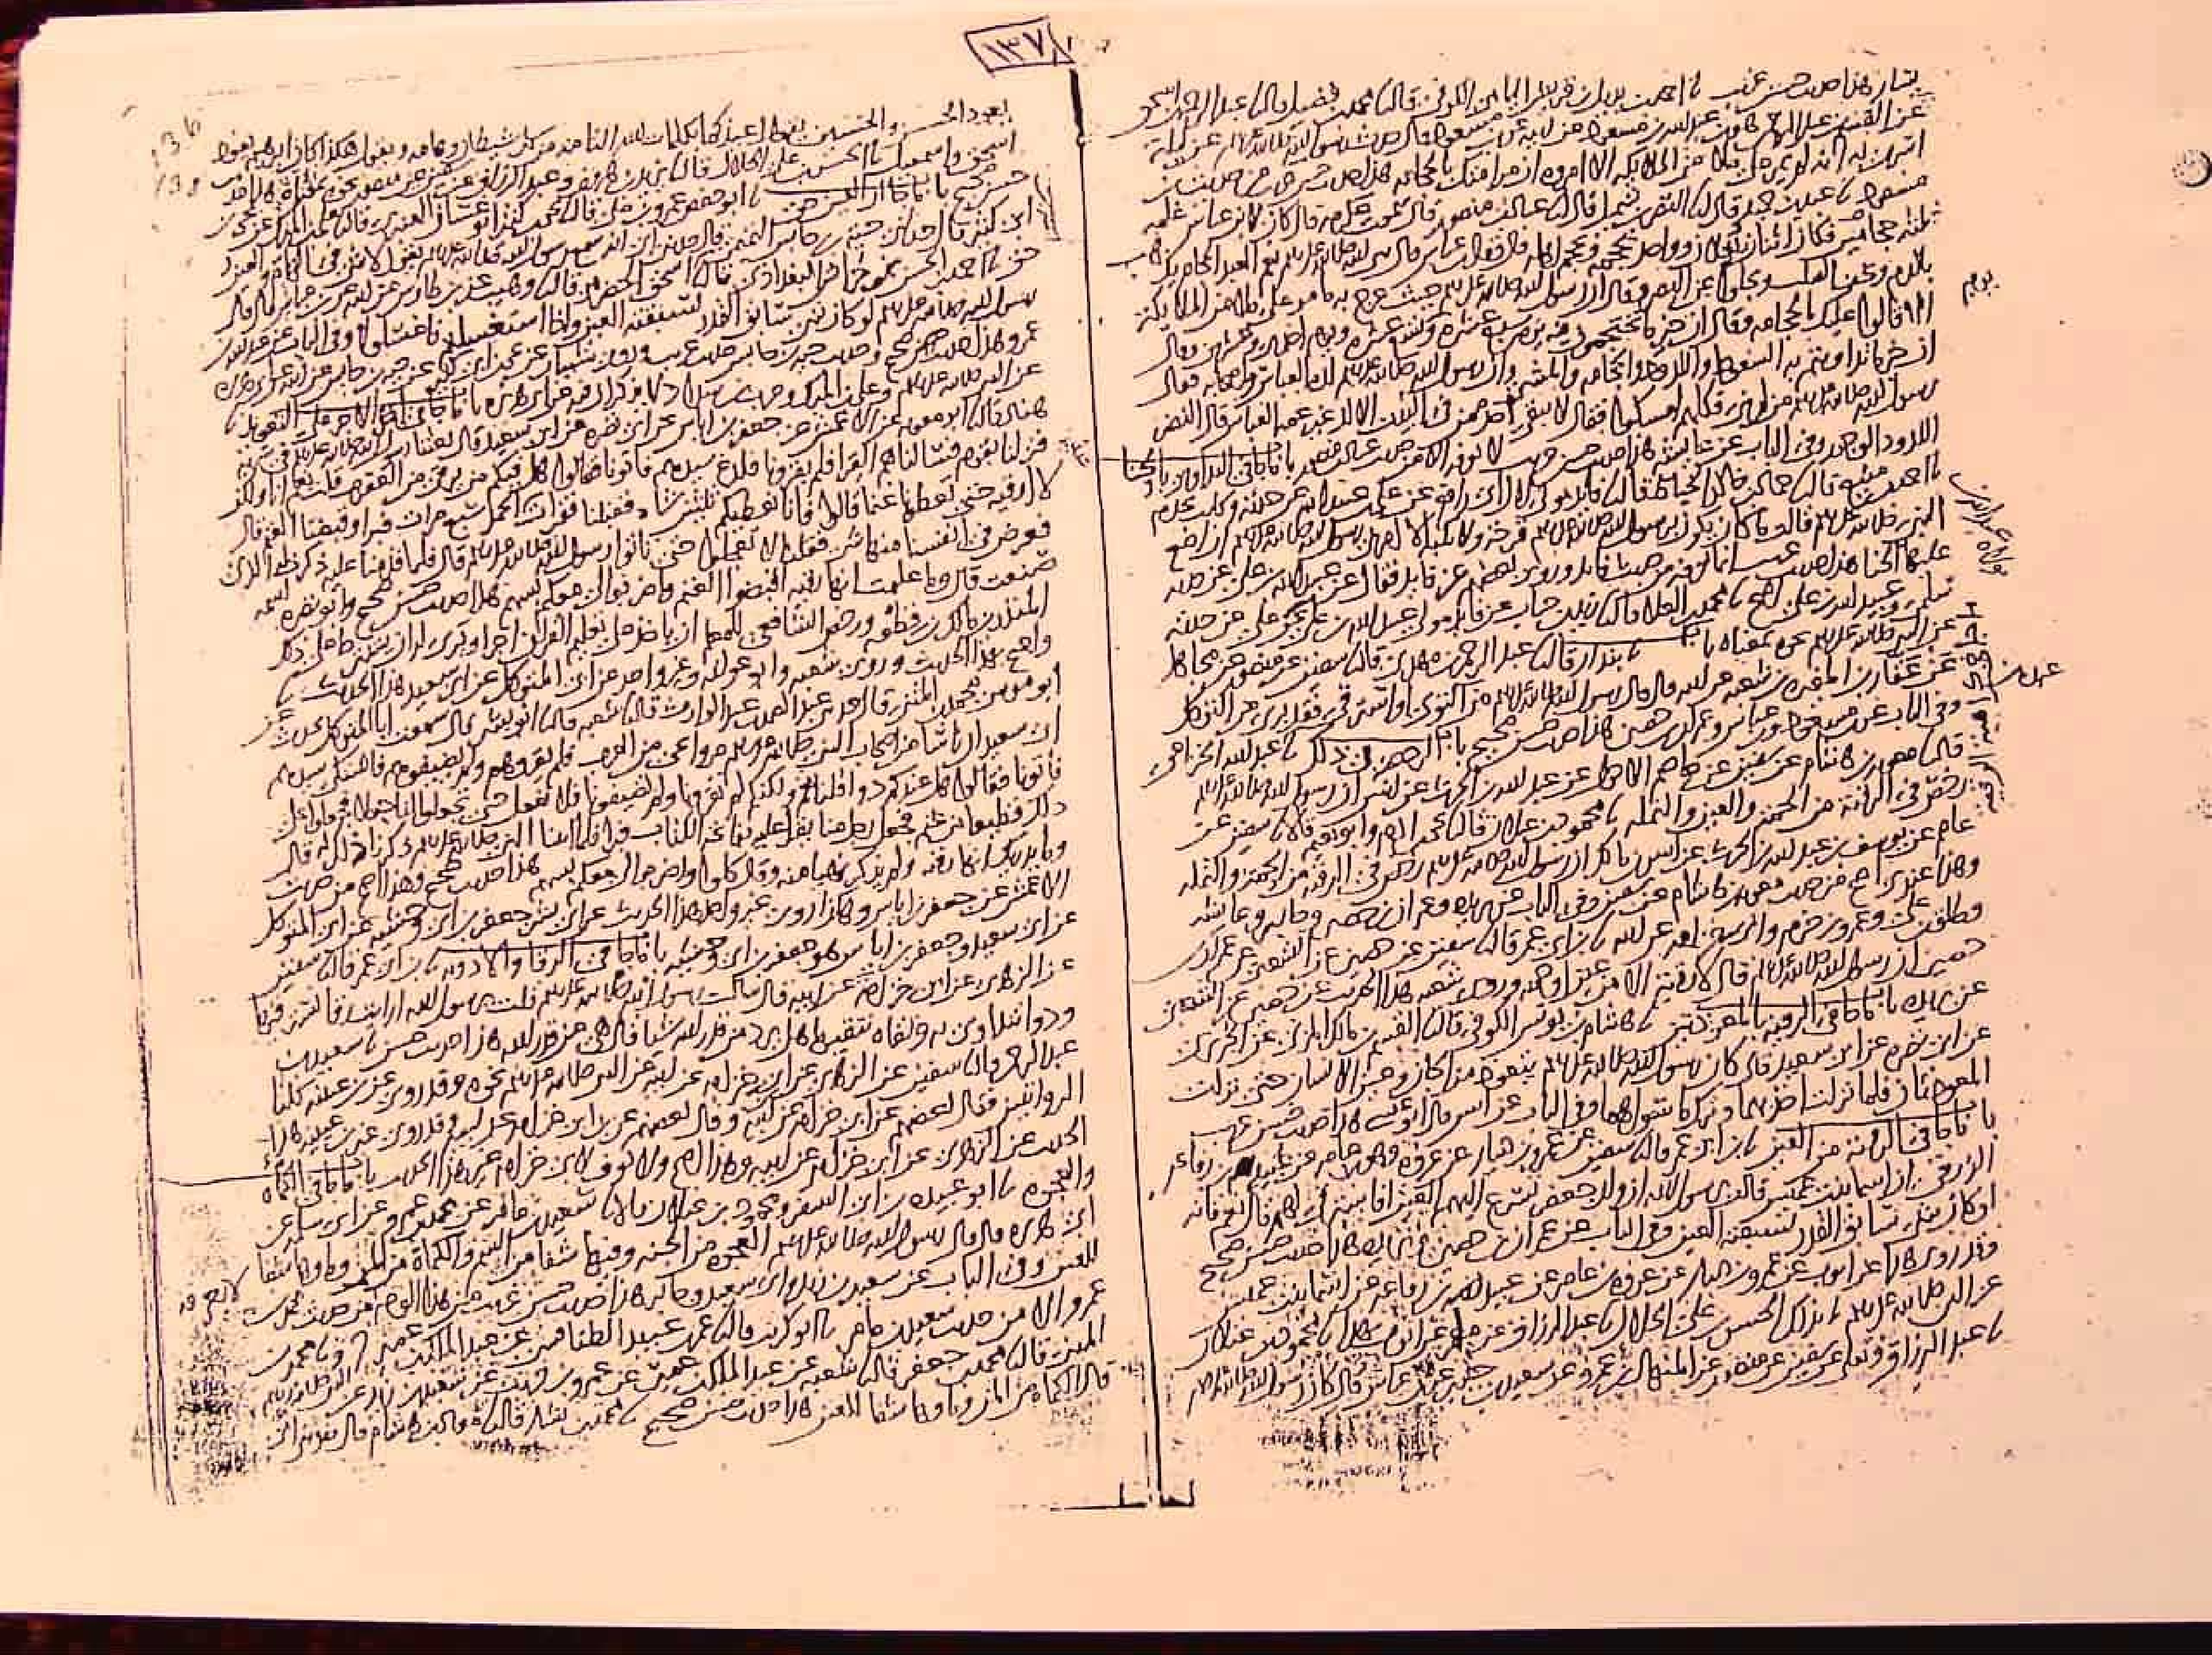 ١٣٧
136
138
هذا حديث حسن غريب نا احمد بن بديل بن قريش اليامي الكوفي قال نا محمد بن فضيل قال نا عبد الرحمن بن اسحق
عن القسم بن عبد الرحمن عن ابن مسعود قال حدث رسول الله صلى الله عليه وسلم عن ليلة
اسري به انه لم يمر على ملا من الملائكة الا امروه ان مر امتك بالحجامة هذا حديث حسن غريب من حديث ابن
مسعود نا عبد بن حميد قال نا النضر بن شميل قال نا عباد بن منصور قال سمعت عكرمة قال كان لابن عباس غلمة
ثلثة حجامين فكان اثنان يغلان وواحد يحجمه ويحجم اهله قال وقال ابن عباس قال نبي الله صلى الله عليه وسلم نعم العبد الحجام يذهب
بالدم ويخف الصلب ويجلو عن البصر وقال ان رسول الله صلى الله عليه وسلم حيث عرج به ما مر على ملا من الملائكة
الا قالوا عليك بالحجامة وقال ان خير ما تحتجمون فيه يوم سبع عشرة ويوم تسع عشرة ويوم احدى وعشرين وقال
ان خير ما تداويتم به السعوط واللدود والحجامة والمشي وان رسول الله صلى الله عليه وسلم لده العباس واصحابه فقال
رسول الله صلى الله عليه وسلم من لدني فكلهم امسكوا فقال لا يبقى احد ممن في البيت الا لد غير عمه العباس قال النضر
اللدود الوجور وفي الباب عن عايشة هذا حديث حسن غريب لا نعرفه الا من حديث عباد بن منصور باب ما جا في التداوي بالحنا
نا احمد بن منيع قال نا حماد بن خالد الخياط قال نا فايد مولى لال ابي رافع عن علي بن عبيد الله عن جدته وكانت تخدم
النبي صلى الله عليه وسلم قالت ما كان يكون برسول الله صلى الله عليه وسلم قرحة ولا نكبة الا امرني رسول الله صلى الله عليه وسلم ان اضع
عليها الحنا هذا حديث غريب انما نعرفه من حديث فايد وروى بعضهم عن فايد فقال عن عبيد الله بن علي عن جدته
سلمى وعبيد الله بن علي اصح نا محمد بن العلا قال نا زيد بن حباب عن فايد مولى عبيد الله بن علي عن جدته
عن النبي صلى الله عليه وسلم نحوه بمعناه باب نا بندار قال نا عبد الرحمن بن مهدي قال نا سفين عن منصور عن مجاهد
عن عقار بن المغيرة بن شعبة عن ابيه قال قال رسول الله صلى الله عليه وسلم من اكتوى او استرقى فقد بري من التوكل
وفي الباب عن ابن مسعود وابن عباس وعمران بن حصين هذا حديث حسن صحيح باب الرخصة في ذلك نا عبدة بن عبد الله الخزاعي
قال نا معوية بن هشام عن سفين عن عاصم الاحول عن عبد الله بن الحارث عن انس ان رسول الله صلى الله عليه وسلم
رخص في الرقية من الحمة والعين والنملة نا محمود بن غيلان قال نا يحيى بن ادم وابو نعيم قالا نا سفين عن
عاصم عن يوسف بن عبد الله بن الحارث عن انس بن مالك ان رسول الله صلى الله عليه وسلم رخص في الرقية من الحمة والنملة
وهذا عندي اصح من حديث معوية بن هشام عن سفين وفي الباب عن بريدة وعمران بن حصين وجابر وعايشة
وطلق بن علي وعمرو بن حزم وابي خزامة عن ابيه نا ابن ابي عمر قال نا سفين عن حصين عن الشعبي عن عمران بن
حصين ان رسول الله صلى الله عليه وسلم قال لا رقية الا من عين او حمة وروى شعبة هذا الحديث عن حصين عن الشعبي
عن بريدة باب ما جا في الرقية بالمعوذتين نا هشام بن يونس الكوفي قال نا القسم بن مالك المزني عن الجريري
عن ابي نضرة عن ابي سعيد قال كان رسول الله صلى الله عليه وسلم يتعوذ من الجان وعين الانسان حتى نزلت
المعوذتان فلما نزلت اخذ بهما وترك ما سواهما وفي الباب عن انس قال ابو عيسى هذا حديث حسن غريب
باب ما جا في الرقية من العين نا ابن ابي عمر قال نا سفين عن عمرو بن دينار عن عروة وهو ابن عامر عن عبيد بن رفاعة
الزرقي ان اسما بنت عميس قالت يا رسول الله ان ولد جعفر تسرع اليهم العين افاسترقي لهم قال نعم فانه
لو كان شي سابق القدر لسبقته العين وفي الباب عن عمران بن حصين وبريدة هذا حديث حسن صحيح
وقد روي هذا عن ايوب عن عمرو بن دينار عن عروة بن عامر عن عبيد بن رفاعة عن اسما بنت عميس
عن النبي صلى الله عليه وسلم نا بذلك الحسن بن علي الخلال نا عبد الرزاق عن معمر عن ايوب بهذا نا محمود بن غيلان
نا عبد الرزاق ويعلى عن سفين عن منصور عن المنهال بن عمرو عن سعيد بن جبير عن ابن عباس قال كان رسول الله صلى الله عليه وسلم
يعوذ الحسن والحسين يقول اعيذكما بكلمات الله التامة من كل شيطان وهامة ويقول هكذا كان ابرهيم يعوذ
اسحق واسمعيل نا الحسن بن علي الخلال قال نا يزيد بن هرون وعبد الرزاق عن سفين عن منصور نحوه بمعناه هذا حديث
حسن صحيح باب ما جا ان العين حق نا ابو حفص عمرو بن علي قال نا يحيى بن كثير ابو غسان العنبري قال نا علي بن المبارك عن يحيى بن
ابي كثير قال حدثني حية بن حابس التميمي قال حدثني ابي انه سمع رسول الله صلى الله عليه وسلم يقول لا شي في الهام والعين
حق نا احمد بن الحسن بن خراش البغدادي قال نا احمد بن اسحق الحضرمي قال نا وهيب عن ابن طاوس عن ابيه عن ابن عباس قال قال
رسول الله صلى الله عليه وسلم لو كان شي سابق القدر لسبقته العين واذا استغسلتم فاغسلوا وفي الباب عن عبد الله بن
عمرو هذا حديث حسن صحيح وحديث حية بن حابس حديث غريب وروى شيبان عن يحيى بن ابي كثير عن حية بن حابس عن ابيه عن ابي هريرة
عن النبي صلى الله عليه وسلم وعلي بن المبارك وحرب بن شداد لا يذكران فيه عن ابي هريرة باب ما جا في اخذ الاجر على التعويذ نا
هناد قال نا ابو معوية عن الاعمش عن جعفر بن اياس عن ابي نضرة عن ابي سعيد قال بعثنا رسول الله صلى الله عليه وسلم في سرية
فنزلنا بقوم فسالناهم القرا فلم يقرونا فلدغ سيدهم فاتونا فقالوا هل فيكم من يرقي من العقرب قلت نعم انا ولكن
لا ارقيه حتى تعطونا غنما قالوا فانا نعطيكم ثلثين شاة فقبلنا فقرات الحمد سبع مرات فبرا وقبضنا الغنم قال
فعرض في انفسنا منها شي فقلنا لا تعجلوا حتى تاتوا رسول الله صلى الله عليه وسلم قال فلما قدمنا عليه ذكرت له الذي
صنعت قال وما علمت انها رقية اقبضوا الغنم واضربوا لي معكم بسهم هذا حديث حسن صحيح وابو نضرة اسمه
المنذر بن مالك بن قطعة ورخص الشافعي للمعلم ان ياخذ على تعليم القران اجرا ويرى له ان يشترط على ذلك
واحتج بهذا الحديث وروى شعبة وابو عوانة وغير واحد عن ابي المتوكل عن ابي سعيد هذا الحديث نا
ابو موسى محمد بن المثنى قال حدثني عبد الصمد بن عبد الوارث قال نا شعبة قال نا ابو بشر قال سمعت ابا المتوكل يحدث عن
ابي سعيد ان ناسا من اصحاب النبي صلى الله عليه وسلم مروا بحي من العرب فلم يقروهم ولم يضيفوهم فاشتكى سيدهم
فاتونا فقالوا هل عندكم دوا قلنا نعم ولكنكم لم تقرونا ولم تضيفونا فلا نفعل حتى تجعلوا لنا جعلا فجعلوا على
ذلك قطيعا من غنم فجعل رجل منا يقرا عليه بفاتحة الكتاب فبرا فلما اتينا النبي صلى الله عليه وسلم ذكرنا ذلك له قال
وما يدريك انها رقية ولم يذكر نهيا منه وقال كلوا واضربوا لي معكم بسهم هذا حديث صحيح وهذا اصح من حديث
الاعمش عن جعفر بن اياس وهكذا روى غير واحد هذا الحديث عن ابي بشر جعفر بن ابي وحشية عن ابي المتوكل
عن ابي سعيد وجعفر بن اياس هو جعفر بن ابي وحشية باب ما جا في الرقا والادوية نا ابن ابي عمر قال نا سفين
عن الزهري عن ابي خزامة عن ابيه قال سالت رسول الله صلى الله عليه وسلم قلت يا رسول الله ارايت رقا نسترقيها
ودوا نتداوى به وتقاة نتقيها هل يرد من قدر الله شيا قال هي من قدر الله هذا حديث حسن نا سعيد بن
عبد الرحمن قال نا سفين عن الزهري عن ابن ابي خزامة عن ابيه عن النبي صلى الله عليه وسلم نحوه وقد روي عن ابن عيينة كلتا
الروايتين فقال بعضهم عن ابي خزامة عن ابيه وقال بعضهم عن ابن ابي خزامة عن ابيه وقد روى غير ابن عيينة هذا
الحديث عن الزهري عن ابي خزامة عن ابيه وهذا اصح ولا نعرف لابي خزامة غير هذا الحديث باب ما جا في الكماة
والعجوة نا ابو عبيدة بن ابي السفر ومحمود بن غيلان قالا نا سعيد بن عامر عن محمد بن عمرو عن ابي سلمة عن
ابي هريرة قال قال رسول الله صلى الله عليه وسلم العجوة من الجنة وفيها شفا من السم والكماة من المن وماوها شفا
للعين وفي الباب عن سعيد بن زيد وابي سعيد وجابر هذا حديث حسن غريب من هذا الوجه من حديث محمد بن
عمرو الا من حديث سعيد بن عامر نا ابو كريب قال نا عمر بن عبيد الطنافسي عن عبد الملك بن عمير ح ونا محمد بن
المثنى قال نا محمد بن جعفر قال نا شعبة عن عبد الملك بن عمير عن عمرو بن حريث عن سعيد بن زيد عن النبي صلى الله عليه وسلم
قال الكماة من المن وماوها شفا للعين هذا حديث حسن صحيح نا محمد بن بشار قال نا معاذ بن هشام قال حدثني ابي